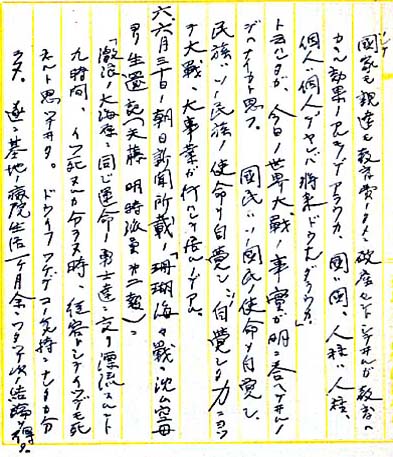 国家モ親達モ教育費ノタメ、破産セントシテヰルガ教育ハ
カヽル効果ノアルモノデアラウカ、国ハ国、人種ハ人種、
個人ハ個人デヤレバ将来ドウナルダラウカ」
トヨハシタガ、今日ノ世界大戦ノ事実ガ明ニ答ヘテヰルノ
デハナイカト思フ。国民ハソノ国民ノ使命ヲ自覚シ、
民族ハソノ民族ノ使命ヲ自覚シ、ソノ自覚シタ力ニヨツ
テ大戦、大事業ガ行ハレテ居ルノデアル。
六、六月三十日ノ朝日新聞所載ノ「珊瑚海々戦ニ沈ム空母
ヨリ生還記(天藤明特派員第二報)ニ
「激浪ノ大海原ニ同ジ運命ノ勇士達ニ交リ漂流スルコト
九時間、イツ死ヌルカ分ラヌ時、従容トシテイツデモ死
ネルト思ツテヰタ。ドウイフワケデコノ気持ニナレタカ分
ラヌ。遂ニ基地ノ病院生活一ケ月余、ワタクシハ次ノ結論ヲ得タ。